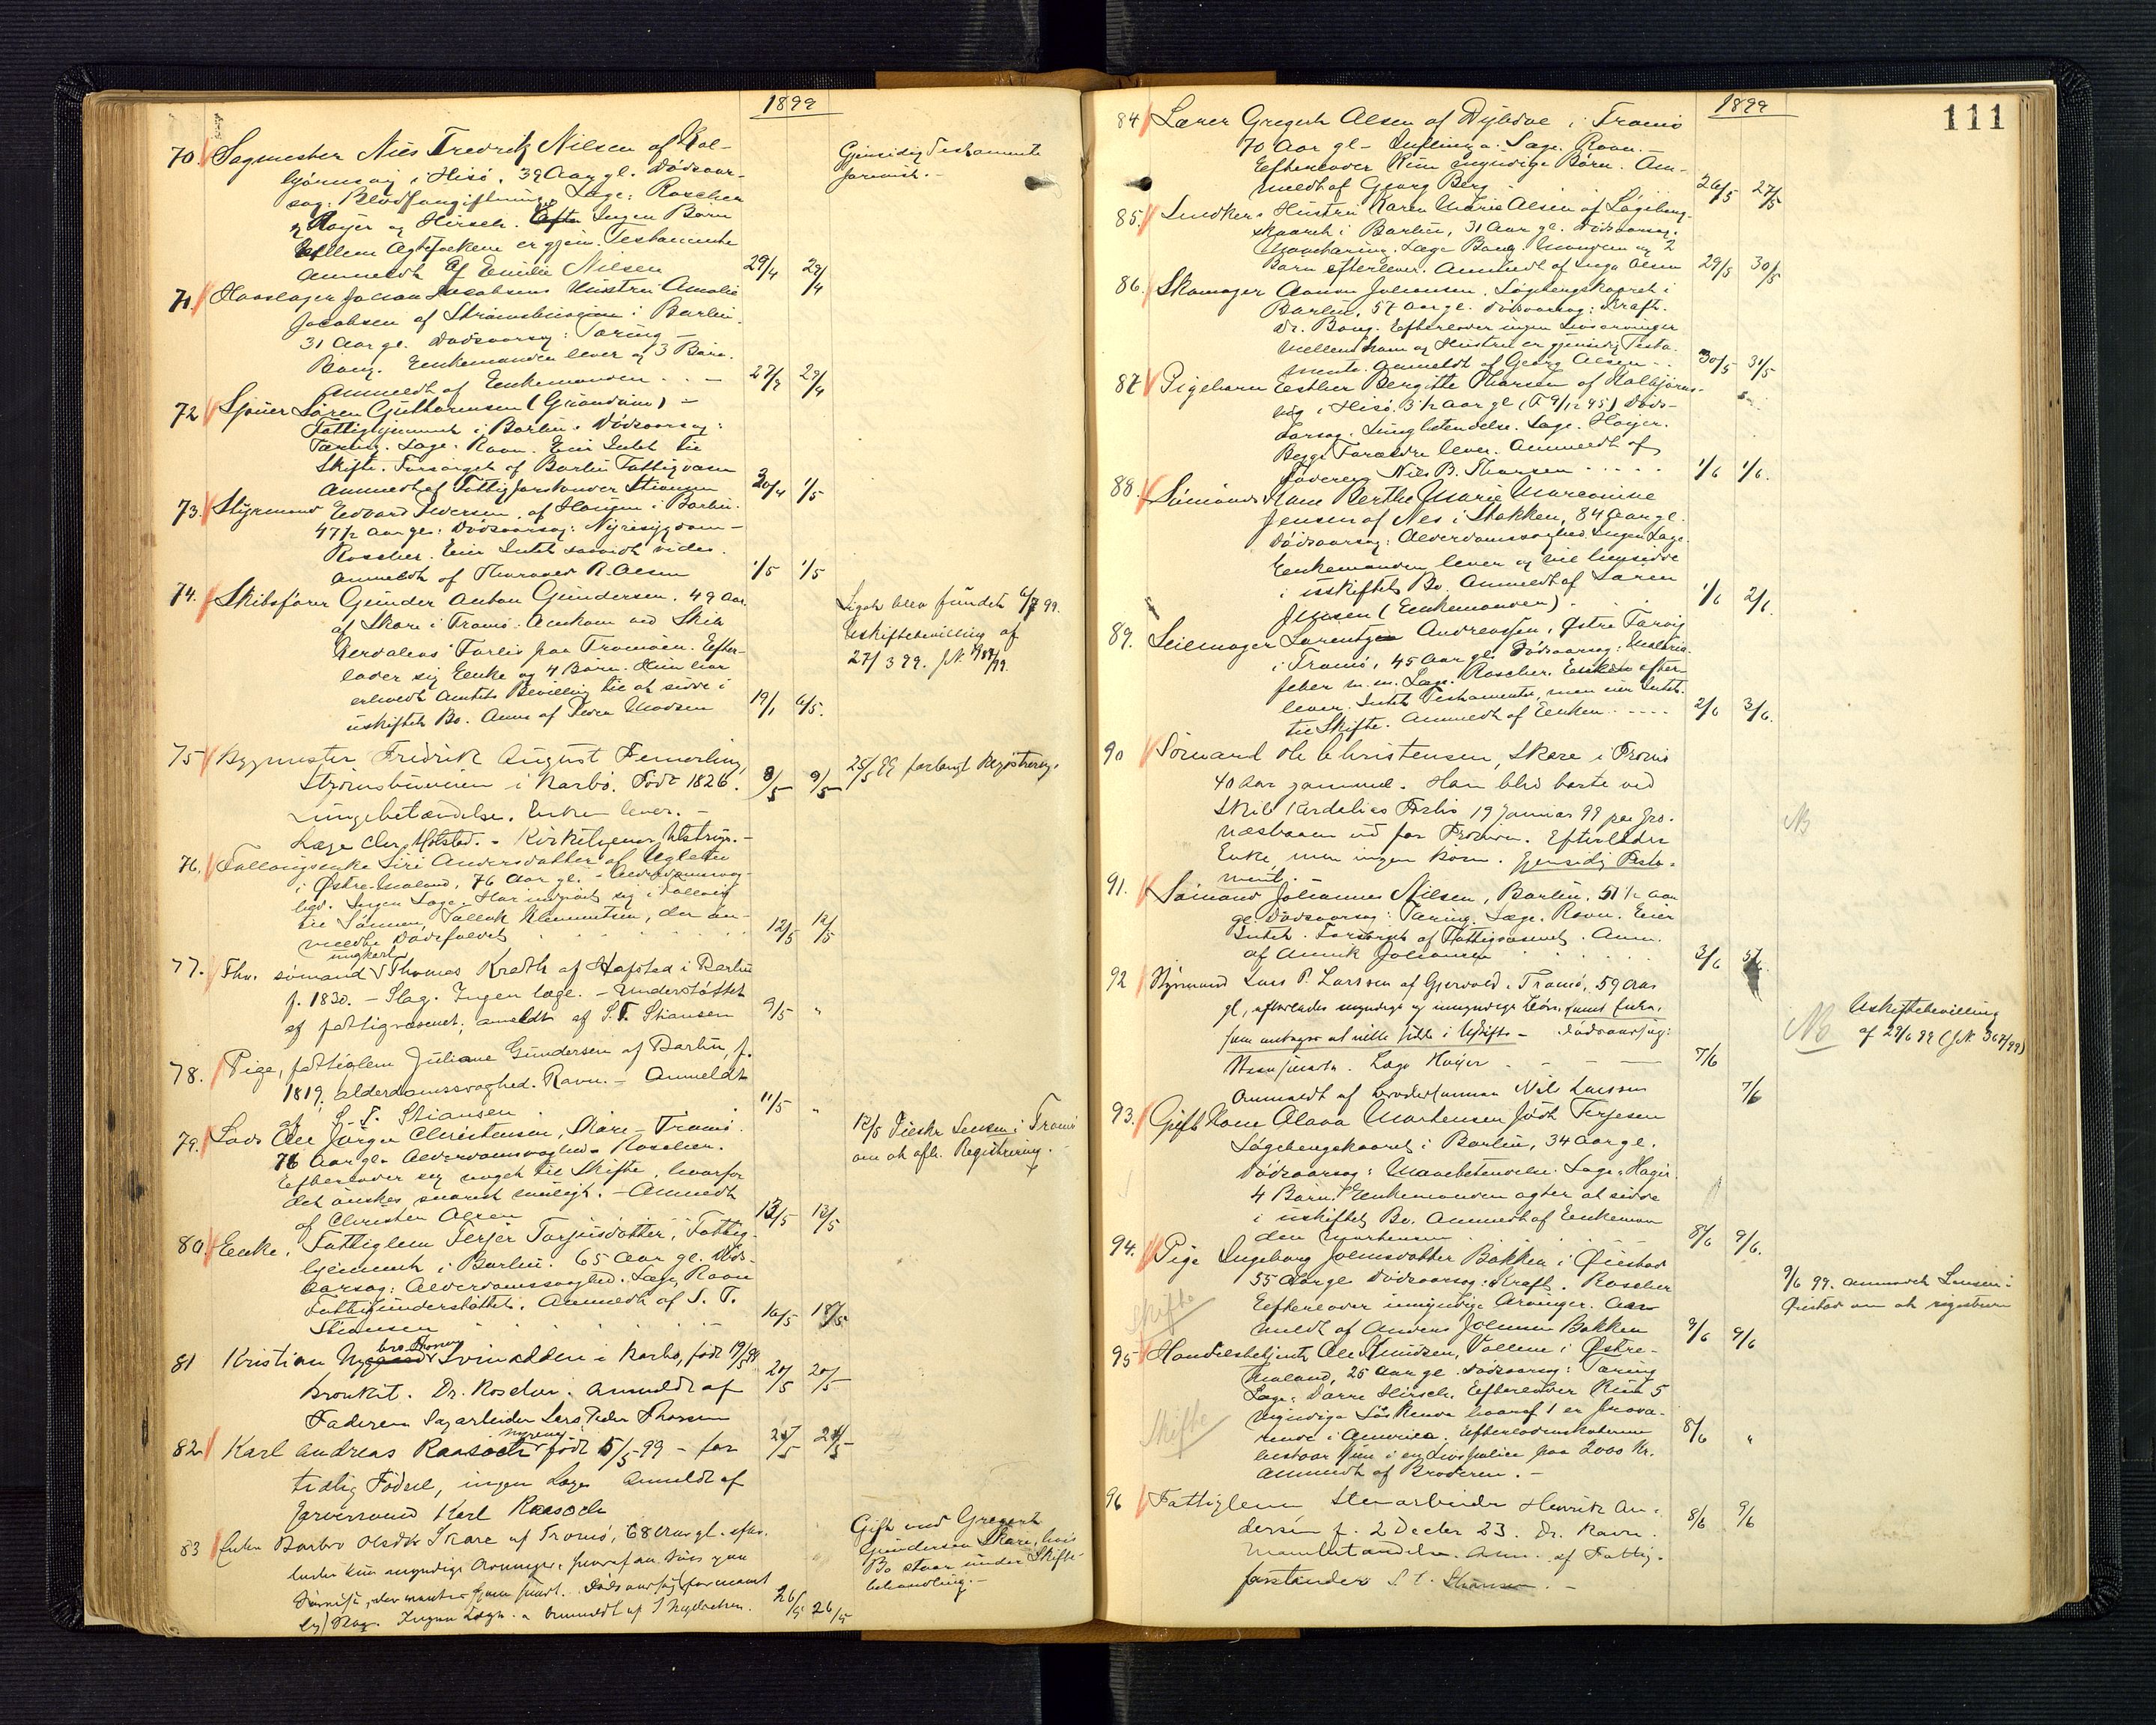 1899
70. Sagmester Nils Fredrik Nilsen af Kol-
bjørnsvig i Hisø, 39 Aar gl. Dødsaar-
sag: Blodforgiftning. Læge: Roscher
og Høyer og Hirsch. Efter Ingen Børn
Mellem Ægtefolkene er gjens. Testamente
Anmeldt af Emilie Nilsen 29/4 29/4
Gjensidig Testamente
71. Jacobsens Hustru Amalie
Jacobsen af Strømsbuseien i Barbu.
31 Aar gl. Dødsaarsag: Tæring
Bang. Enkemanden lever og 3 Børn.
Anmeldt af Enkemanden 29/4
72 Sjøuer Søren Gulbransen
Fattighjemmet i Barbu. Dødsaarsag:
Tæring. Læge. Ravn. Eier Intet til
Skifte. Forsørget af Barbu Fattigvæsen
Anmeldt af Fattigforstander Stiansen 30/4 1/5
73. Styrmand Edvard Iversen af Haugen i Barbu.
47 1/2 Aar gl. Dødsaarsag: Nyresygdom -
Roscher. Eier Intet saavidt vides.
Anmeldt af Thorvald R. Olsen 1/5 1/5
74. Skibsfører Gunder Anton Gundersen. 49 Aar.
af Skare i Tromø. Omkom ved Skib
Kerdalias Forlis paa Tromøen. Efter-
lader sig Enke og 4 Børn. Hun har
erholdt Amtets Bevilling til at sidde i
uskiftet Bo. Anm af Peder Madsen 19/1 6/5.
Liget blev fundet 6/7 99.
Uskiftebevilling af
27/3 99.
75 Bygmester Fredrik August Femerling,
Strømsbuveien i Barbo. Født 1826. 8/5 9/5
Lungebetændelse. Enken lever. -
25/5 99 forlangt Registrering.
76. Siri Andersdatter af Ugleto
i Østre Moland, 76 Aar gl. - Alderdomssvag-
hed. Ingen Læge. Har indgivet sig i Føllaug
til Sønnen Tallak Klemmetsen, der an-
meldte Dødsfaldet 12/5 12/5
ungkarl
77. Fhv. sømand Thomas Kræth af Hafsted i Barbu
f. 1830. - Slag. Ingen læge. - Understøttet
af fattigvæsenet; anmeldt af S. T. Stiansen 9/5 "
78. Pige, fattiglem Juliane Gundersen af Barbu, f.
1819. alderdomssvaghed. Ravn. - Anmeldt
af S. T. Stiansen 11/5 "
79. Lods Ole Jørgen Christensen, Skare - Tromø.
76 Aar gl. Alderdomssvaghed. Roscher.
Efterlader sig noget til Skifte, hvorfor
det ønskes snarest muligt. - Anmeldt
af Christen Olsen 13/5 13/5
12/5 Tilskr Lensm i Tromø
om at afh. Registrering.
80 Enke, Fattiglem Terjer Torjusdatter, Fattig-
hjemmet i Barbu. 65 Aar gl. Døds-
aarsag: Alderdomssvaghed. Læge Ravn
Fattigunderstøttet. Anmeldt af S. T.
Stiansen 16/5 18/5
81 Kristian i Barbo, født
Bronkit. Dr. Roscher. Anmeldt af 20/5 20/5
Faderen Sagarbeider Lars Peder Thorsen
82 Karl Andreas Raasoch født 5/5-99 - for
tidlig Fødsel, ingen Læge Anmeldt af
Karl Raasoch
83 Enke Barbro Olsdtr Skare af Tromø, 68 Aar gl. efter-
lader kun myndige Arvinger,
Slag. Ingen Læge. Anmeldt af 26/5 26/5
Gift med Gregert
Gundersen Skare, hvis
Bo staar under Skifte-
behandling. -
111
1899
84 Lærer Gregert Olsen af Dybdal i Tromø
70 Aar gl - Influenza. Læge. Ravn. -
Efterlader kun myndige Børn. An-
meldt af Georg Berg 26/5 27/5
85. Hustru Karen Marie Olsen af Løgebergs-
kaaret i Barbu, 31 Aar gl. Dødsaarsag.
Mavekatarr. Læge Bang. Manden og 2
Børn efterlever. Anmeldt af Inga Olsen 29/5 30/5
86. Skomager Aanon Johansen. Løgebergskaaret i
Barbu, 57 Aar gl. Dødsaarsag: Kræft.
Dr. Bang. Efterlader ingen Livsarvinger
Mellem ham og Hustru er gjensidig Testa-
mente. Anmeldt af Georg Olsen 30/5 31/5
87 Pigebarn Esther Bergitte Thorsen af Kolbjørns-
vig i Hisø. 3 1/2 Aar gl (F 9/12 95) Døds-
aarsag. Lungbetendelse. Læge. Høyer.
Begge Forældre lever. Anmeldt af
Faderen Nils B. Thorsen 1/6 1/6.
88. Sømands Kone Berthe Marie Mareonine
Jensen af Nes i Stokken, 84 Aar gl.
Dødsaarsag: Alderdomssvaghed. Ingen Læge.
Enkemanden lever og vil hensidde
i uskiftet Bo. Anmeldt af Søren
Jensen (Enkemanden) 1/6 2/6.
89. Seilmager Lorentzen Andreassen, Østre Torvig
i Tromø, 45 Aar gl. Dødsaarsag: Malaria-
feber m. m. Læge. Roscher. Enken efter-
lever. Intet Testamente, men eier Intet
til Skifte. Anmeldt af Enken 2/6 3/6.
90 Sømand Ole Christensen, Skare i Tromø
40 Aar gammel. Han blev borte ved
Skib Kerdalias Forlis 19 Januar 99 paa Gro-
næsbaaen ud for Tromøen. Efterlader
Enke, men ingen Børn. Gjensidig Testa-
ment.
NB
91. Sømand Johannes Nilsen, Barbu. 51 1/2 Aar
gl. Dødsaarsag: Tæring. Læge. Ravn. Eier
Intet. Forsørget af Fattigvæsenet. Anm.
af Annik Johansen 3/6
92 Styrmand Lars P. Larssen af Gjervold i Tromø, 59 Aar
gl, efterlader myndige og umyndige Børn samt Enke,
som antages at ville sidde i Uskifte - Dødsaarsag:
Læge Høyer 7/6
Anmeldt af Nils Larssen 7/6
No
Uskiftebevilling
af 29/6 99
93. Gift Kone Olava Mortensen født Terjesen
Løgebergskaaret i Barbu, 34 Aar gl.
Dødsaarsag: Mavebetendelse. Læge: Høyer.
4 Børn. Enkemanden agter at sidde
i uskiftet Bo. Anmeldt af Enkeman
den Mortensen 8/6 9/6.
94. Pige Ingeborg Johnsdatter Bakken i Øiestad
55 Aar gl Dødsaarsag: Kræft. Roscher
Efterlader umyndige Arvinger. An-
meldt af Anders Johnsen Bakken 9/6 9/6
Skifte
9/6 99. anmodet Lensm. i
Øiestad om at registrere
95 Handelsbetjent Ole Knudsen, Vollene i Østre-
Moland, 25 Aar gl. Dødsaarsag: Tæring
Læge: Dorre Hirsch. Efterlader kun 5
myndige Søskende hvoraf 1 er fravæ-
rende i America. Efterladenskaberne
bestaar kun i en Livspolice paa 2000 Kr.
Anmeldt af Broderen. - 8/6 "
Skifte
96 Fattiglem Stenarbeider Henrik An-
dersen f. 2 Decbr 23. Dr. Ravn. 8/6 9/6
Mavebetændelse. Anm. af Fattig-
forstander S. T. Stiansen. -